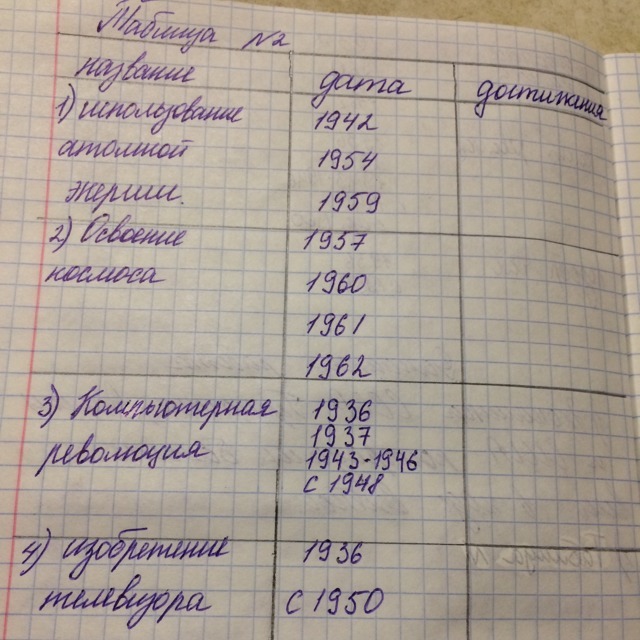 Таблица №2
название дата достижения
1) использование 1942
атомной 1954
энергии. 1959
2) Освоение 1957
космоса 1960
1961
1962
3) Компьютерная 1936
1937
революция 1943-1946
с 1948
4) изобретение 1936
телевизора с 1950